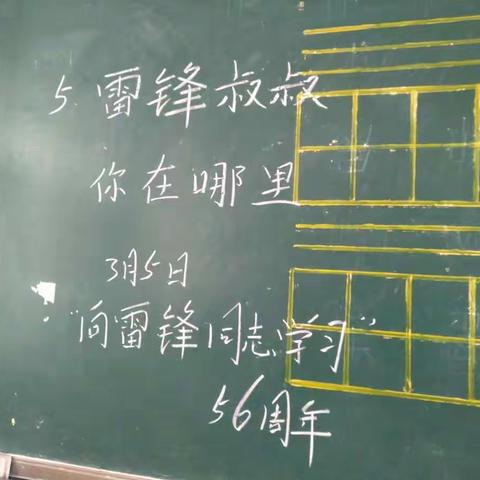 5.雷锋叔叔
你在哪里
3月5日
“向雷锋同志学习”
56周年